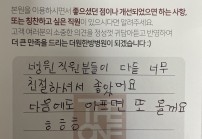 본원을 이용하시면서 좋으셨던 점이나 개선되었으면 하는 사항,
또는 칭찬하고 싶은 직원이 있으시다면 알려주세요.
고객 여러분의 소중한 의견을 정성껏 귀담아듣고 반영하여
더 큰 만족을 드리는 더원한방병원이 되겠습니다 :)
병원 직원분들이 다들 너무
친절하셔서 좋았어요
다음에도 아프면 또 올게요
ㅎㅎㅎ
THE
ONE